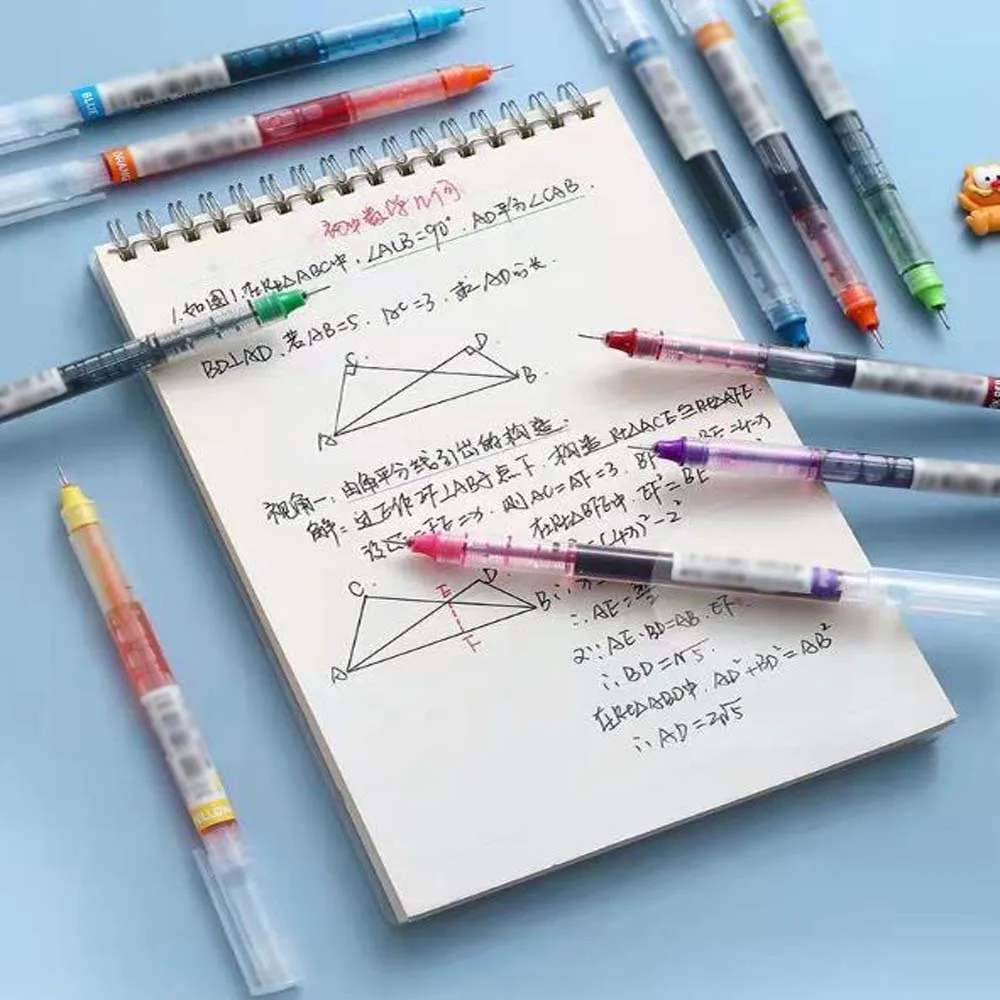 BLUE
ORANG
初中数学几何
1.如图1.在Rt△ABC中,∠ACB=90°.AD平分∠CAB.
BD⊥AD.若AB=5.AC=3.求AD的长.
C
D
A
B
视角一:由角平分线引出的构造.
解:过E作EF⊥AB于点F.构造Rt△ACE≌Rt△AFE.
设CE=FE=x.则AC=AF=3.BF=2 BE=4-x
在Rt△BFE中.EF²=BE
(4-x)²-2²
∴AE=
又∵AE·BD=AB·EF.
∴BD=√5.
在Rt△ABD中.AD²+BD²=AB²
∴AD=2√5
C
E
D
B
A
F
YELLOW